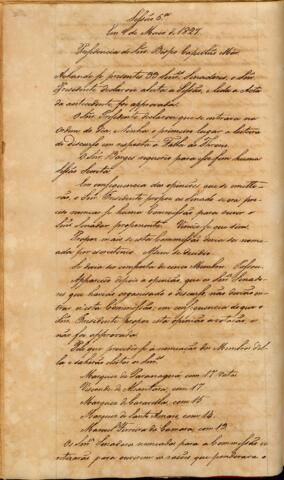 Sessão 5ª
Em 9 de Maio de 1827.
Presidencia do Snr. Bispo Capellão Mór.
Achando-se presentes 33 Snrs. Senadores, o Snr.
Presidente declarou aberta a Sessão, e lida a Acta
da antecedente foi approvada.
O Snr. Presidente declarou que se entrava na
Ordem do Dia, e tinha o primeiro lugar a leitura
do discurso em resposta á Falla do Throno.
O Snr. Borges requereo para isso fim huma
Sessão Secreta.
Em consequencia das opiniões que se emitti-
rão, o Snr. Presidente propoz ao Senado se era pre-
ciso nomear-se huma Commissão para ouvir o
Snr. Senador proponente. Venceo-se que sim.
Propoz mais se esta Commissão devia ser nome-
ada por escrutinio. Assim se decidio.
Se devia ser composta de cinco Membros. Passou.
Appareceo depois a opinião, que os Snrs. Senado-
res que havião organisado o discurso, não devião en-
trar nesta Commissão, em consequencia do que o
Snr. Presidente propoz esta opinião á votação, e
não foi approvada.
Pelo que procedeo-se á nomeação dos Membros del-
la e sahirão eleitos os Snrs.
Marquez de Paranaguá com 17 votos
Visconde de Alcantara, com 17
Marquez de Caravellas, com 15
Marquez de Santo Amaro, com 14
Manoel Ferreira da Camara, com 13
Os Snrs. Senadores nomeados para a Commissão se
retirarão para ouvirem as razões que ponderava o